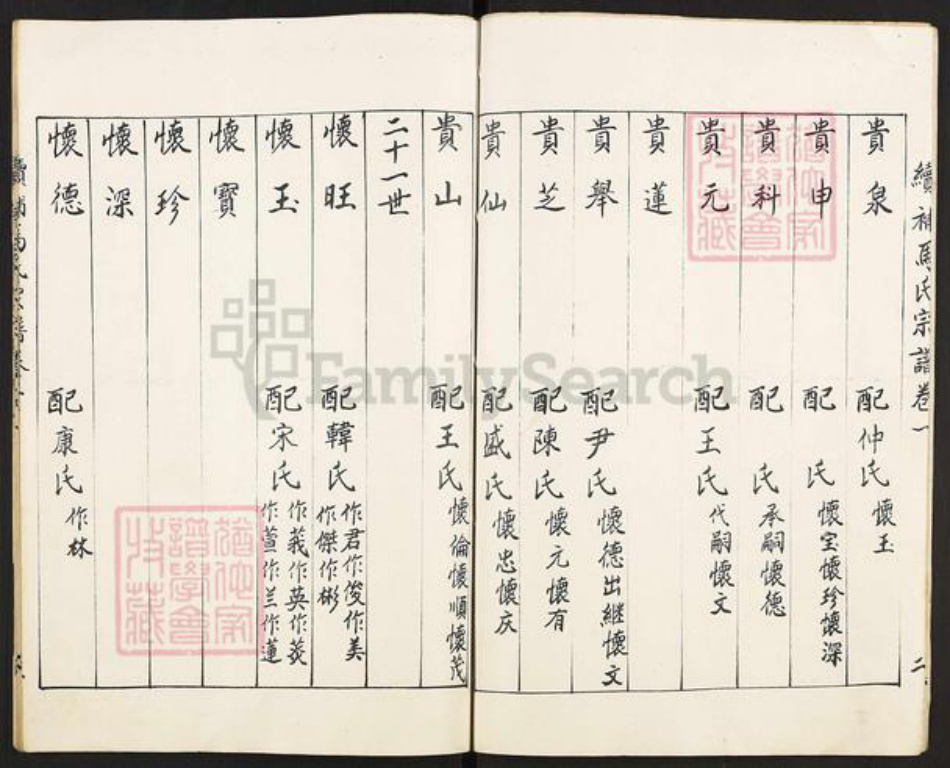 續補馬氏宗譜卷一
二
貴泉 配仲氏 懷玉
貴申 配 氏 懷宝懷珍懷深
貴科 配 氏 承嗣懷德
貴元 配王氏 代嗣懷文
貴蓮
貴舉 配尹氏 懷德出継懷文
貴芝 配陳氏 懷元懷有
貴仙 配盛氏 懷忠懷庆
貴山 配王氏 懷倫懷順懷茂
二十一世
懷旺 配韓氏 作君作俊作美
作傑作彬
懷玉 配宋氏 作義作英作
作萱作兰作蓮
懷寶
懷珍
懷深
懷德 配康氏 作林
FamilySearch